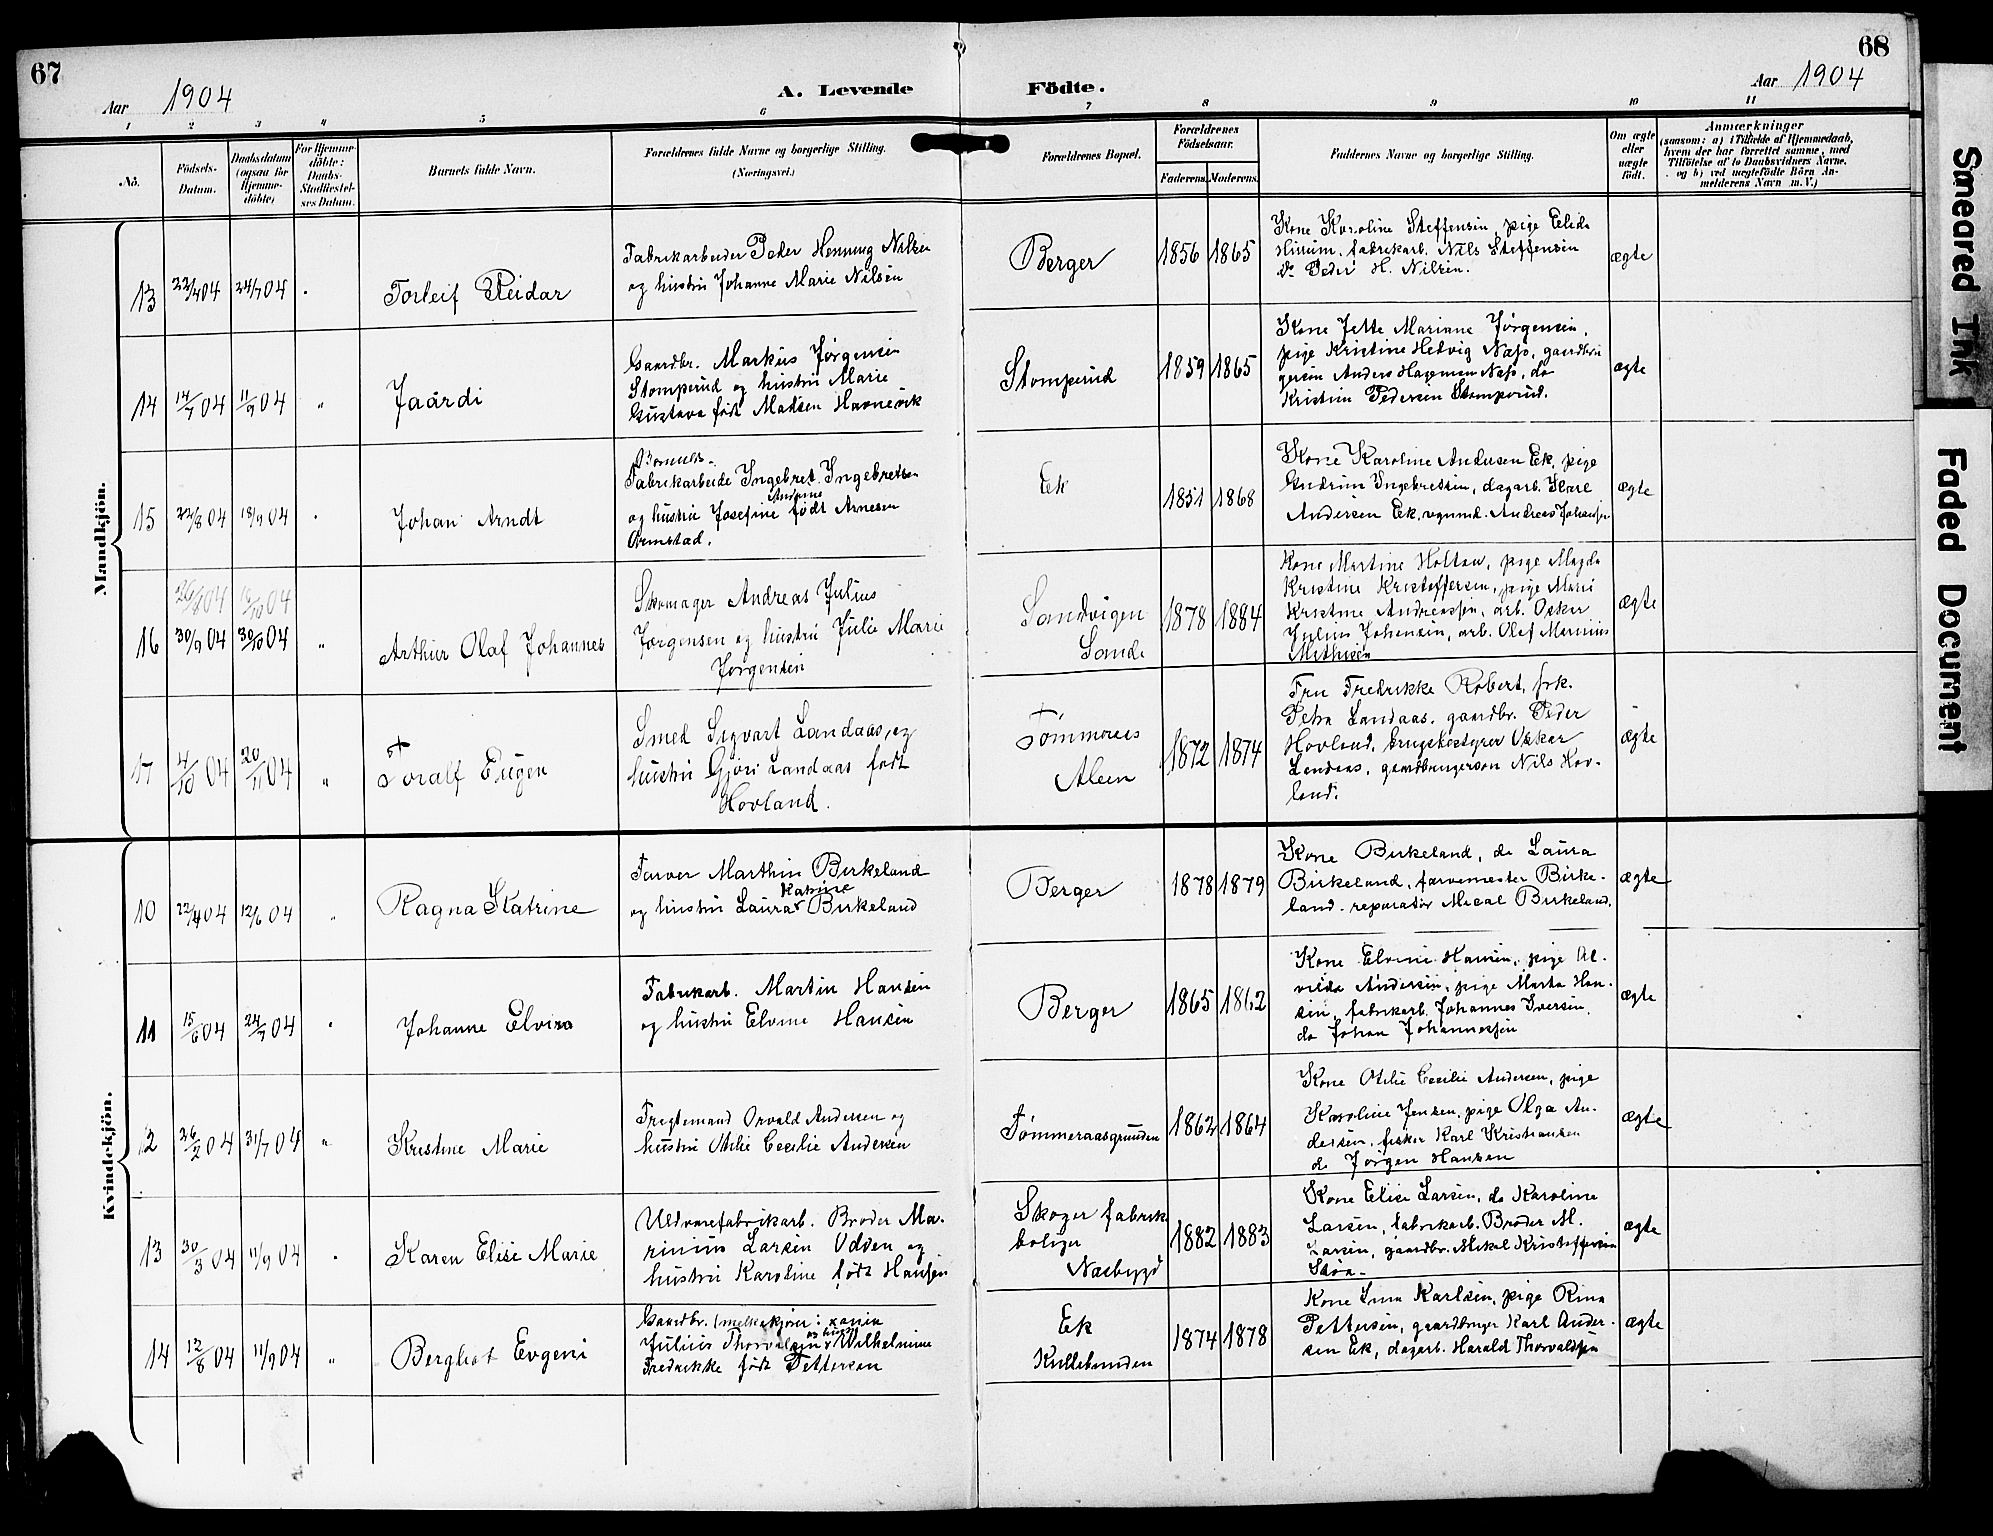 67
Aar 1904
A. Levende
Födte.
68
Aar 1904
1 2 3 4 5 6 7 8 9 10 11
No.
Födsels-
Datum.
Daabsdatum
(ogsaa for
Hjemme-
döbte)
For Hjemme-
döbte:
Daabs-
Stadfæstel-
ses Datum.
Barnets fulde Navn.
Forældrenes fulde Navne og borgerlige Stilling.
(Næringsvei.)
Forældrenes Bopæl.
Forældrenes
Födselsaar.
Faderens. Moderens.
Faddernes Navne og borgerlige Stilling.
Om ægte
eller
uægte
födt.
Anmærkninger
(saasom: a) i Tilfælde af Hjemmedaab,
hvem der har forrettet samme, med
Tilföielse af to Daabsvidners Navne,
og b) ved uægtefödte Börn An-
melderens Navn m. V.)
Mandkjön.
13 04 24/7 04 Torleif Reidar
Fabrikarbeider Peder Henning Nilsen
og hustru Johanne Marie Nilsen
Berger 1856 1865
Kone Karoline Steffensen, pige Elida
fabrikarb. Nils Steffensen
do Peder H. Nilsen.
ægte
14 14/7 04 11/9 04 " Jaárdi
Gaardbr. Markus Jørgensen
Stomperud og hustru Marie
Gustava født Madsen Havnevik
Stomperud 1859 1865
Kone Jette Mariane Jørgensen,
pige Kristine Hedvig Næss, gaardbru
gersøn Anders Hageman Næss, do
Kristian Pedersen Stomperud.
ægte
15 22/8 04 18/9 04 Johan Arndt
Bomulds-
Fabrikarbeide Ingebret Ingebretsen
Andrine
og hustru Josefine født Arnesen
Ormstad.
Ek 1851 1868
Kone Karoline Andersen Ek, pige
Gudrun Ingebretsen, dagarb. Karl
Andersen Ek, vognmd. Andreas Johansen
ægte
26/8 04 04
16 30/9 04 30/10 04 " Arthur Olaf Johannes
Skomager Andreas Julius
Jørgensen og hustru Julie Marie
Jørgensen
Sandvigen
Sande
1878 1884
Kone Martine Holtan, pige Magda
Kristine Kristoffersen, pige Marie
Kristine Andreassen, arb. Oskar
Julius Johansen, arb. Olaf Marinius
Mathisen
ægte
17 4/10 04 20/11 04 " Toralf Eugen
Smed Sigvart Landaas, og
hustru Gjøri Landaas født
Hovland.
Tømmeraas
1872 1874
Fru Fredrikke Robert, frk.
Petra Landaas, gaardbr. Peder
Hovland, brugsbestyrer Oskar
Landaas, gaardbrugersøn Nils Hov-
land.
ægte
Kvindekjön.
10 22/4 04 12/6 04 " Ragna Katrine
Farver Marthin Birkeland
Katrine
og hustru Laura Birkeland
Berger 1878 1879
Kone Birkeland, do Laura
Birkeland, farvemester Birke-
land, reparatør Mical Birkeland.
ægte
11 15/6 04 24/7 04 " Johanne Elvina
Fabrikarb. Martin Hansen
og hustru Elvine Hansen
Berger 1865 1862
Kone Elvine Hansen, pige Al-
vilda Andersen, pige Marta Han-
sen, fabrikarb. Johannes Iversen,
do Johan Johannessen
ægte
12 26/2 04 31/7 04 " Kristine Marie
Fragtemand Orvald Andersen og
hustru Otelie Cecilie Andersen
Tømmeraasgrunden 1862 1864
Kone Otelie Cecilie Andersen, pige
Karoline Jensen, pige Olga An-
dersen, fisker Karl Kristiansen
do Jørgen Hansen
ægte
13 30/3 04 11/9 04 " Karen Elise Marie
Uldvarefabrikarb. Broder Ma-
rinius Larsen Odden og
hustru Karoline født Hansen
Skoger fabrik
boliger
Næsbygd
1882 1883
Kone Elise Larsen, do Karoline
Larsen, fabrikarb. Broder M.
Larsen, gaardbr. Mikal Kristoffersen
ægte
14 12/8 04 11/9 04 " Bergliot Evgeni
Gaardbr. (melkekjører
og hustru
Julius Thorvalsen Wilhelmine
Fredrikke født Pettersen
Ek
Kullebunden
1874 1878
Kone Karlsen, pige Rina
Pettersen, gaardbruger Karl Ander-
sen Ek, dagarb. Harald Thorvaldsen
ægte
Smeared Ink
Faded Document